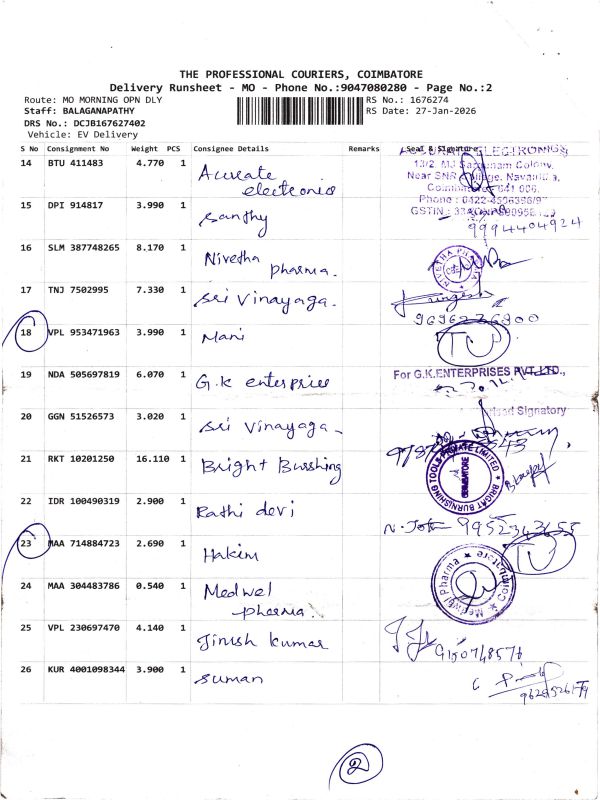 THE PROFESSIONAL COURIERS, COIMBATORE
Delivery Runsheet - MO - Phone No.:9047080280 - Page No.:2
Route: MO MORNING OPN DLY
Staff: BALAGANAPATHY
DRS No.: DCJB167627402
Vehicle: EV Delivery
RS No.: 1676274
RS Date: 27-Jan-2026
S No Consignment No Weight PCS Consignee Details Remarks Seal & Signature
14 BTU 411483 4.770 1 Accurate electronics
ELECTRONICS
Near SNR
Phone : 0422-
GSTIN :
15 DPI 914817 3.990 1 Santhy
9994404924
16 SLM 387748265 8.170 1 Nivetha pharma.
NIVETHA PHARMA
17 TNJ 7502995 7.330 1 Sri Vinayaga.
9696236900
18 VPL 953471963 3.990 1 Mani
19 NDA 505697819 6.070 1 G.K enterprice
For G.K.ENTERPRISES PVT.LTD.,
20 GGN 51526573 3.020 1 Sri Vinayaga
Signatory
21 RKT 10201250 16.110 1 Bright Burshing
BRIGAT BURNISHING TOOLS PRIVATE LIMITED
COIMBATORE
22 IDR 100490319 2.900 1 Rathi devi
23 MAA 714884723 2.690 1 Hakim
24 MAA 304483786 0.540 1 Medwel pharma.
Medwel Pharma * Coimbatore *
25 VPL 230697470 4.140 1 Jinish kumar
26 KUR 4001098344 3.900 1 Suman
2